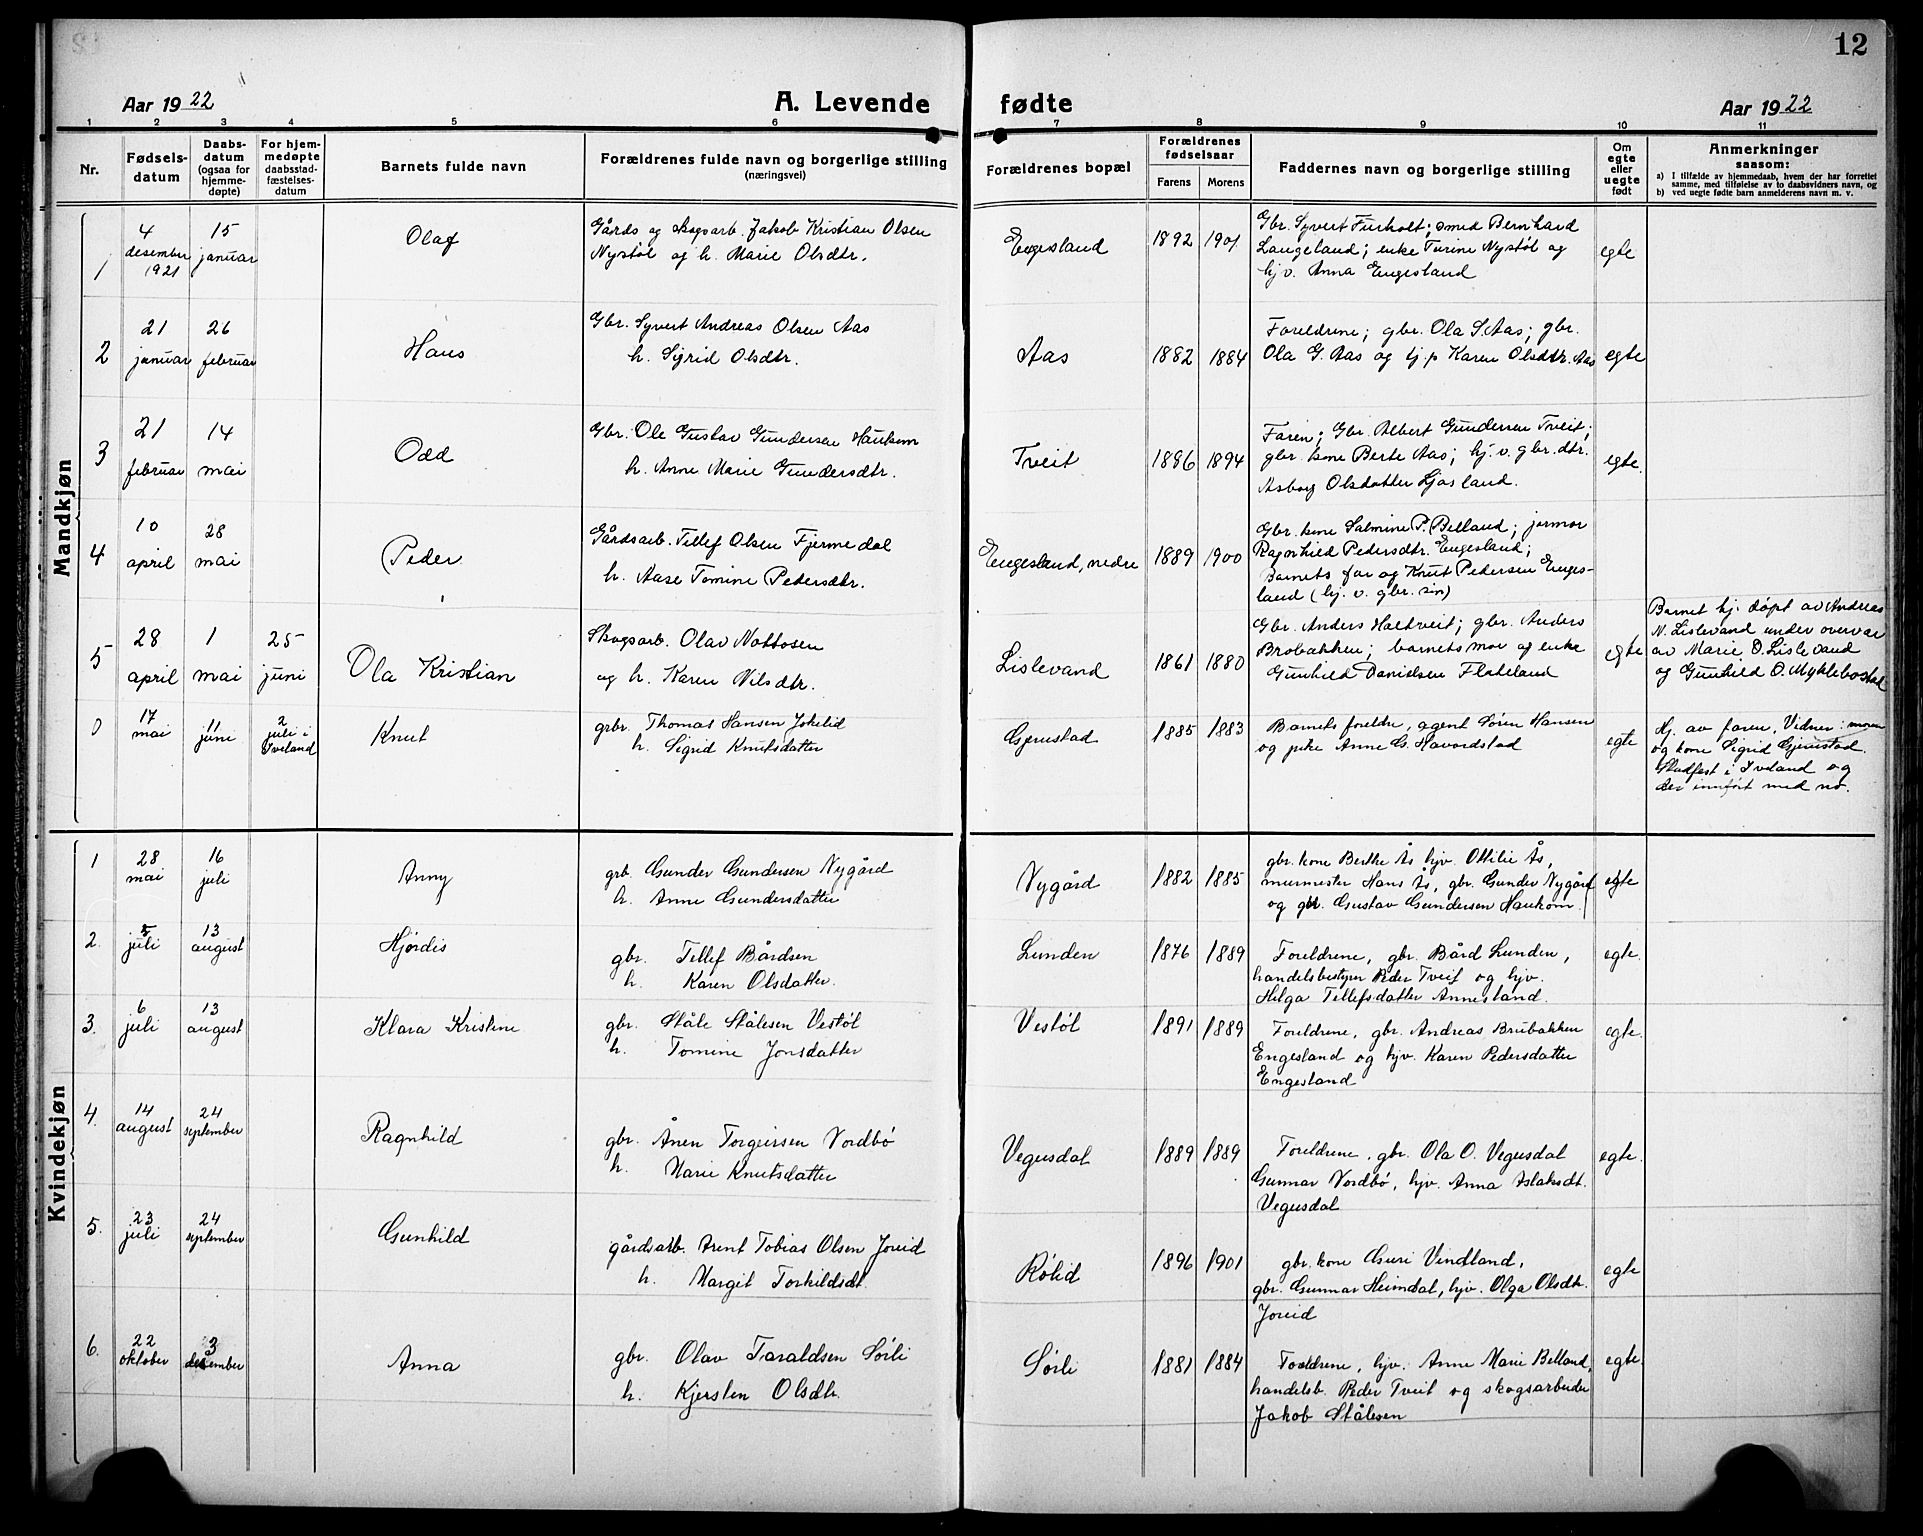 12
Aar 1922
A. Levende fødte
Aar 1922
1 2 3 4 5 6 7 8 9 10 11
Nr.
Fødsels-
datum
Daabs-
datum
(ogsaa for
hjemme-
døpte)
For hjem-
medøpte
daabsstad-
fæstelses-
datum
Barnets fulde navn
Forældrenes fulde navn og borgerlige stilling
(næringsvei)
Forældrenes bopæl
Forældrenes
fødselsaar
Farens Morens
Faddernes navn og borgerlige stilling
Om
egte
eller
uegte
født
Anmerkninger
saasom:
a) I tilfælde av hjemmedaab, hvem der har forrettet
samme, med tilføielse av to daabsvidners navn, og
b) ved uegte fødte barn anmelderens navn m. v.
Mandkjøn
1
4
desember
1921
15
januar
Olaf
Gårds og skogsarb. Jakob Kristian Olsen
Nystøl og h. Marie Olsdtr.
Engesland
1892 1901
Gbr. Syvert Furholt; smed Bernhard
Langeland; enke Turine Nystøl og
hj v. Anna Engesland
egte
2
21
januar
26
februar
Hans
Gbr. Syvert Andreas Olsen Aas
h. Sigrid Olsdtr.
Aas
1882 1884
Foreldrene; gbr. Ola S. Aas; gbr.
Ola G. Aas og tj. p Karen Olsdtr. Aas
egte
3
21
februar
14
mai
Odd
Gbr. Ole Gustav Gundersen Haukom
h. Anne Marie Gundersdtr.
Tveit
1886 1894
Faren; Gbr. Albert Gundersen Tveit;
gbr. kone Berte Aas; hj. v. gbr. dtr.
Asborg Olsdatter Ljosland.
egte.
4
10
april
28
mai
Peder
Gårdsarb. Tellef Olsen Fjermedal
h. Aase Tomine Pedersdtr.
Engesland, nedre
1889 1900
Gbr. kone Salmine P. Belland; jormor
Ragnhild Pedersdtr. Engesland;
Barnets far og Knut Pedersen Enges-
land (hj. v. gbr. søn)
5
28
april
1
mai
25
juni
Ola Kristian
Skogsarb. Olav Nottosen
og h. Karen Nilsdtr.
Lislevand
1861 1880
Gbr. Anders Høltveit; gbr. Anders
Brobakken; barnets mor og enke
Gunhild Danielsen Flateland
egte
Barnet hj. døpt av Andreas
N. Lislevand under overvær
av Marie O. Lislevand
og Gunhild O. Myklebostad
0
17
mai
11
juni
2
juli i
Iveland
Knut
grbr. Thomas Hansen Iskelid
h. Sigrid Knutsdatter
Gjerustad
1885 1883
Barnets foreldre, agent Søren Hansen
og pike Anne G. Håvordstad
egte
Hj. av faren, Vidner: moren
og kone Sigrid Gjerustad.
Stadfest i Iveland og
der innført med no.
Kvindekjøn
1
28
mai
16
juli
Anny
grb. Gunder Gundersen Nygård
h. Anne Gundersdatter
Nygård
1882 1885
gbr. kone Berthe Ås hjv. Ottilie Ås,
murmester Hans Ås, gbr. Gunder Nygård
og gbr. Gustav Gundersen Haukom.
egte
2.
5
juli
13
august
Hjørdis
gbr. Tellef Bårdsen
h. Karen Olsdatter.
Lunden
1876 1889
Foreldrene, gbr. Bård Lunden,
handelsbestyrer Peder Tveit og hjv.
Helga Tellefsdatter Annesland.
egte.
3.
6
juli
13
august
Klara Kristine
gbr. Ståle Stålesen Vestøl
h. Tomine Jonsdatter
Vestøl
1891 1889
Foreldrene, gbr. Andreas Brubakken
Engesland og hjv. Karen Pedersdatter
Engesland
egte.
4.
14
august
24
september
Ragnhild
gbr. Ånen Torgeirsen Nordbø
h. Marie Knutsdatter
Vegusdal
1889 1889
Foreldrene, gbr. Ola O. Vegusdal
Gunnar Nordbø, hjv. Anna Aslaksdt.
Vegusdal
egte.
5.
23
juli
24
september
Gunhild
gårdsarb. Arent Tobias Olsen Joreid
h. Margit Torkildsdt.
Rølid
1896 1901
gbr. kone Guri Vindland,
gbr. Gunnar Heimdal, hjv. Olga Olsdtr.
Joreid
egte
6.
22
oktober
3
desember
Anna
gbr. Olav Taraldsen Sørli
h. Kjersten Olsdtr.
Sørli
1881 1884
Foreldrene, hjv. Anne Marie Belland,
handelsb. Peder Tveit og skogsarbeider
Jakob Stålesen
egte.